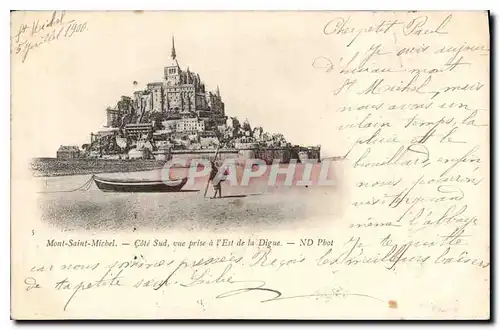 St Michel
5 juillet 1900.
Cher petit Paul
Je suis aujour
d'hui au mont
St Michel, mais
nous avons un
vilain temps, la
pluie et le
brouillard enfin
nous pouvons
visiter quand
même l'abbaye
Je te quitte
CPARAMA
Mont-Saint-Michel. — Côté Sud, vue prise à l'Est de la Digue. — ND Phot
car nous sommes pressés. Reçois les meilleurs baisers
de ta petite sœur.